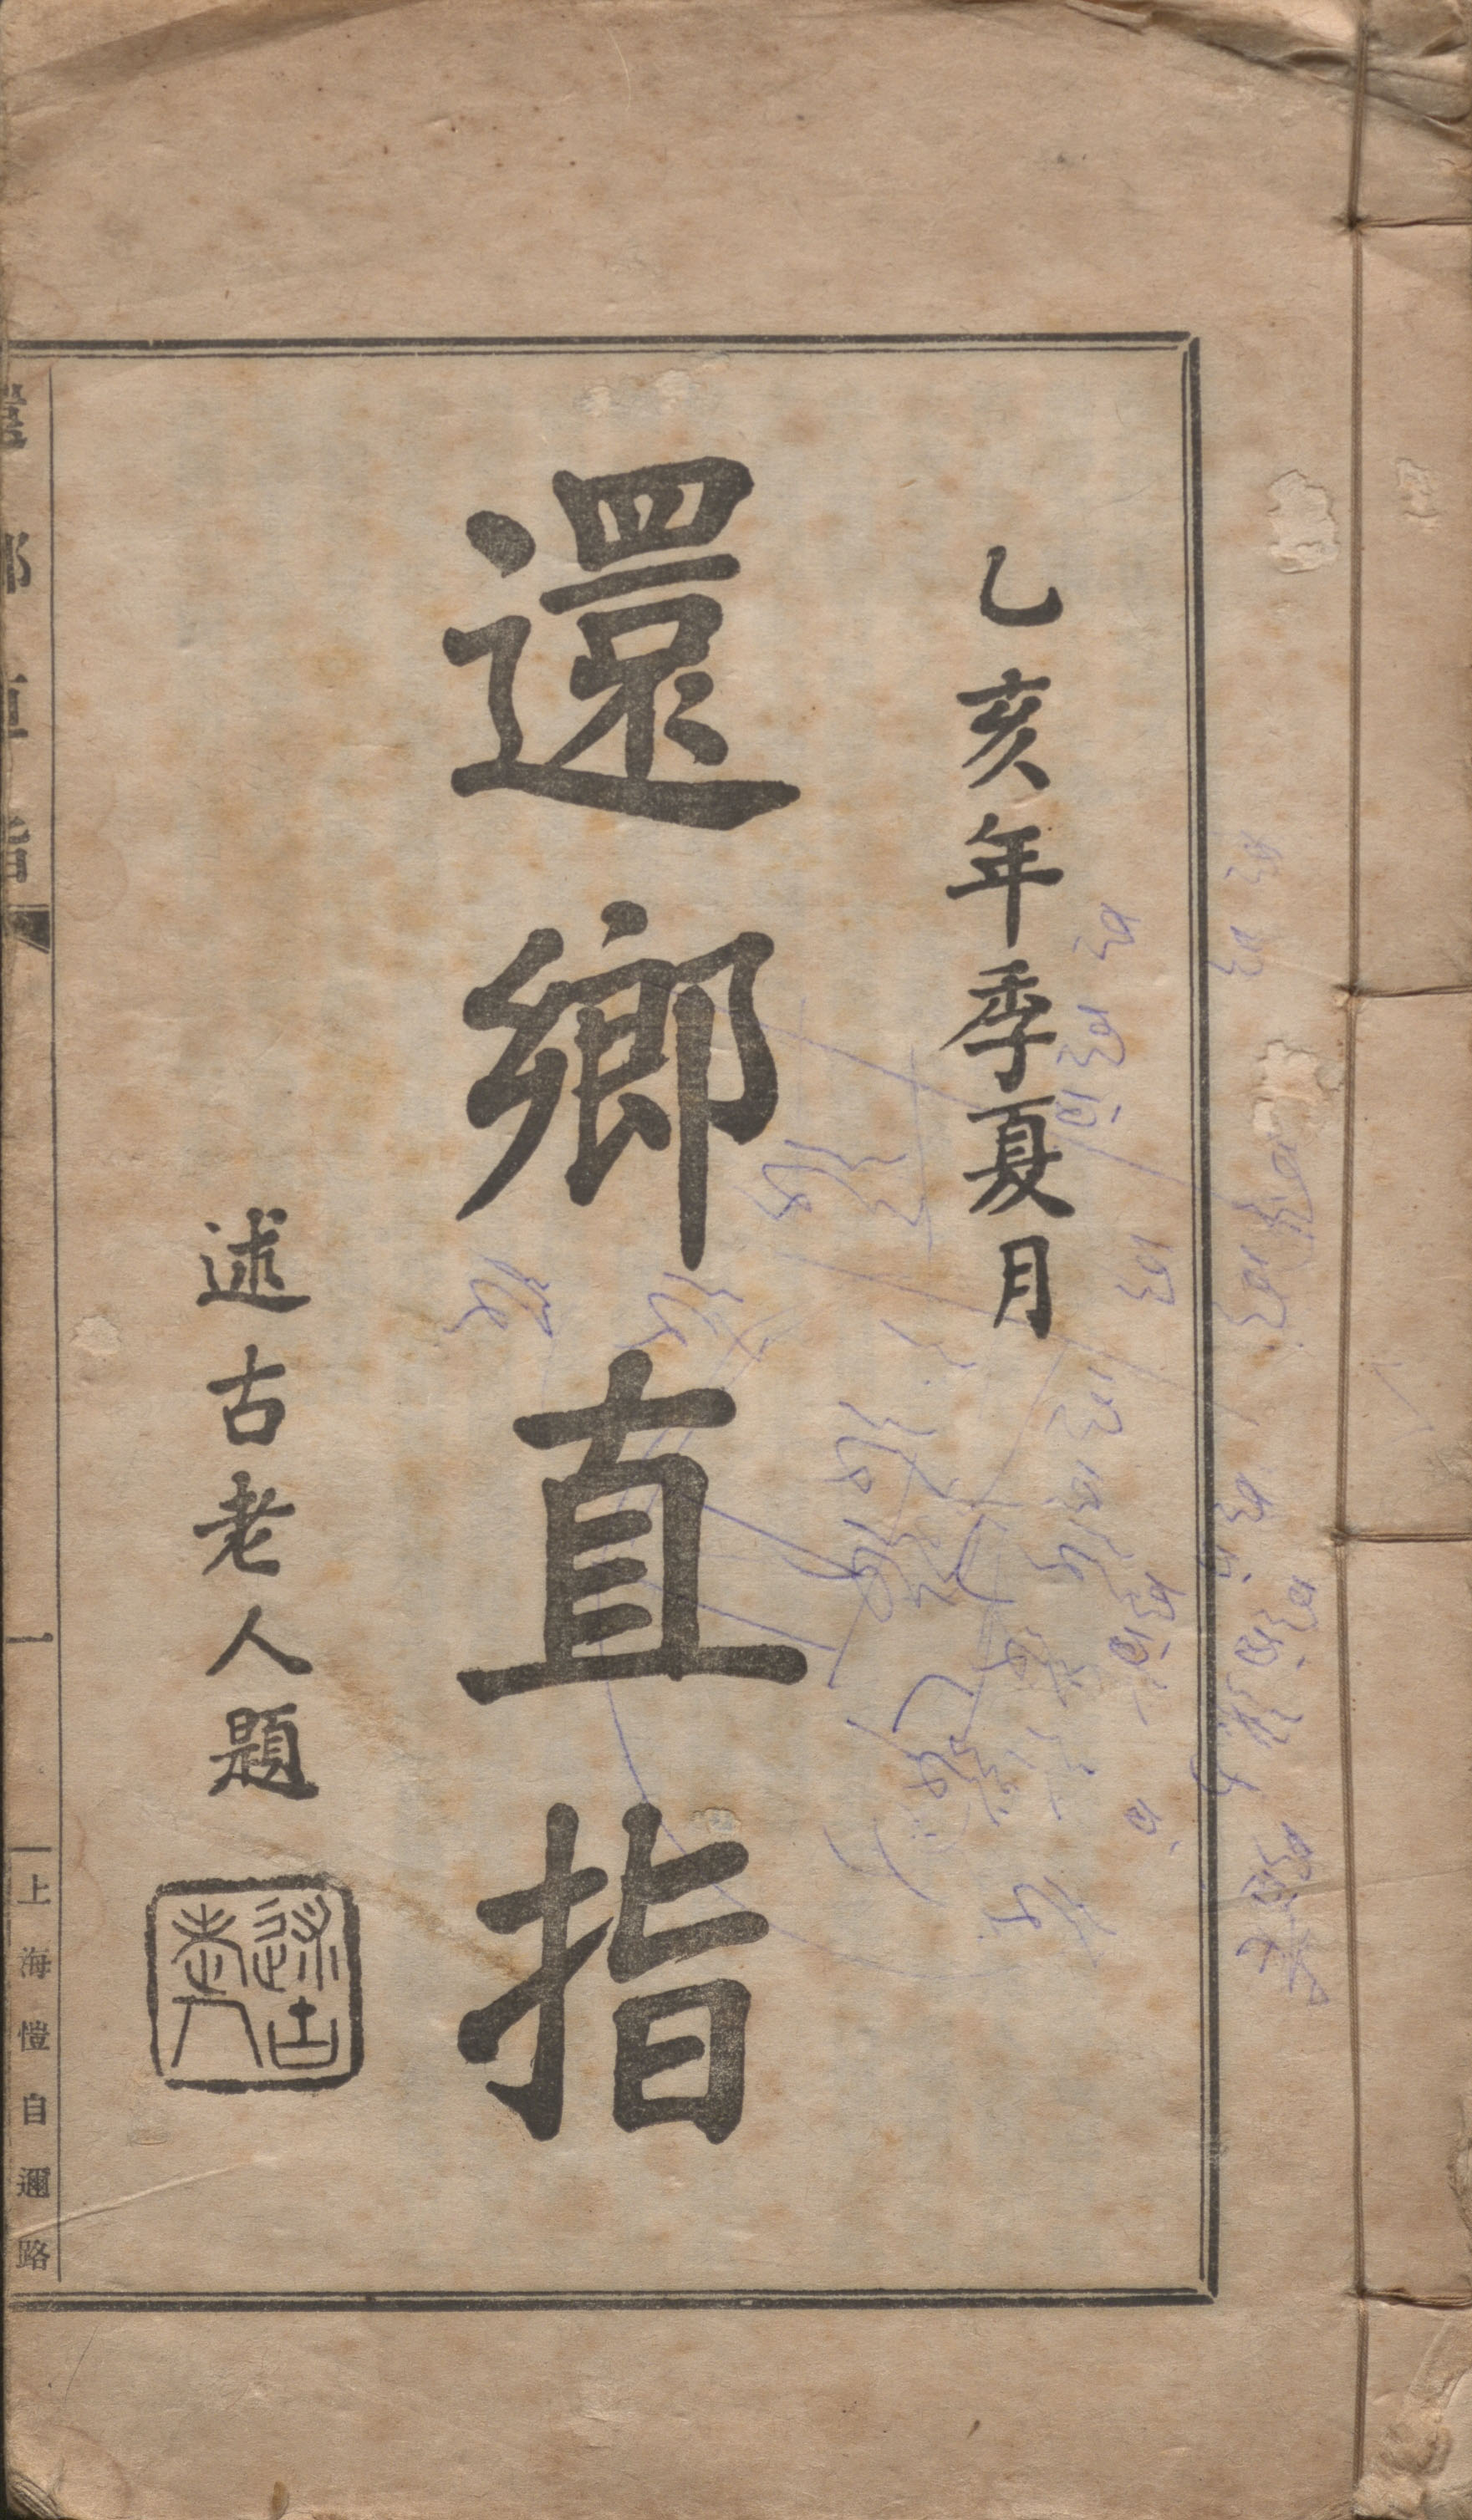 乙亥年季夏月
還鄉直指
述古老人題
述古
老人
還鄉直指
一
上海愷自邇路